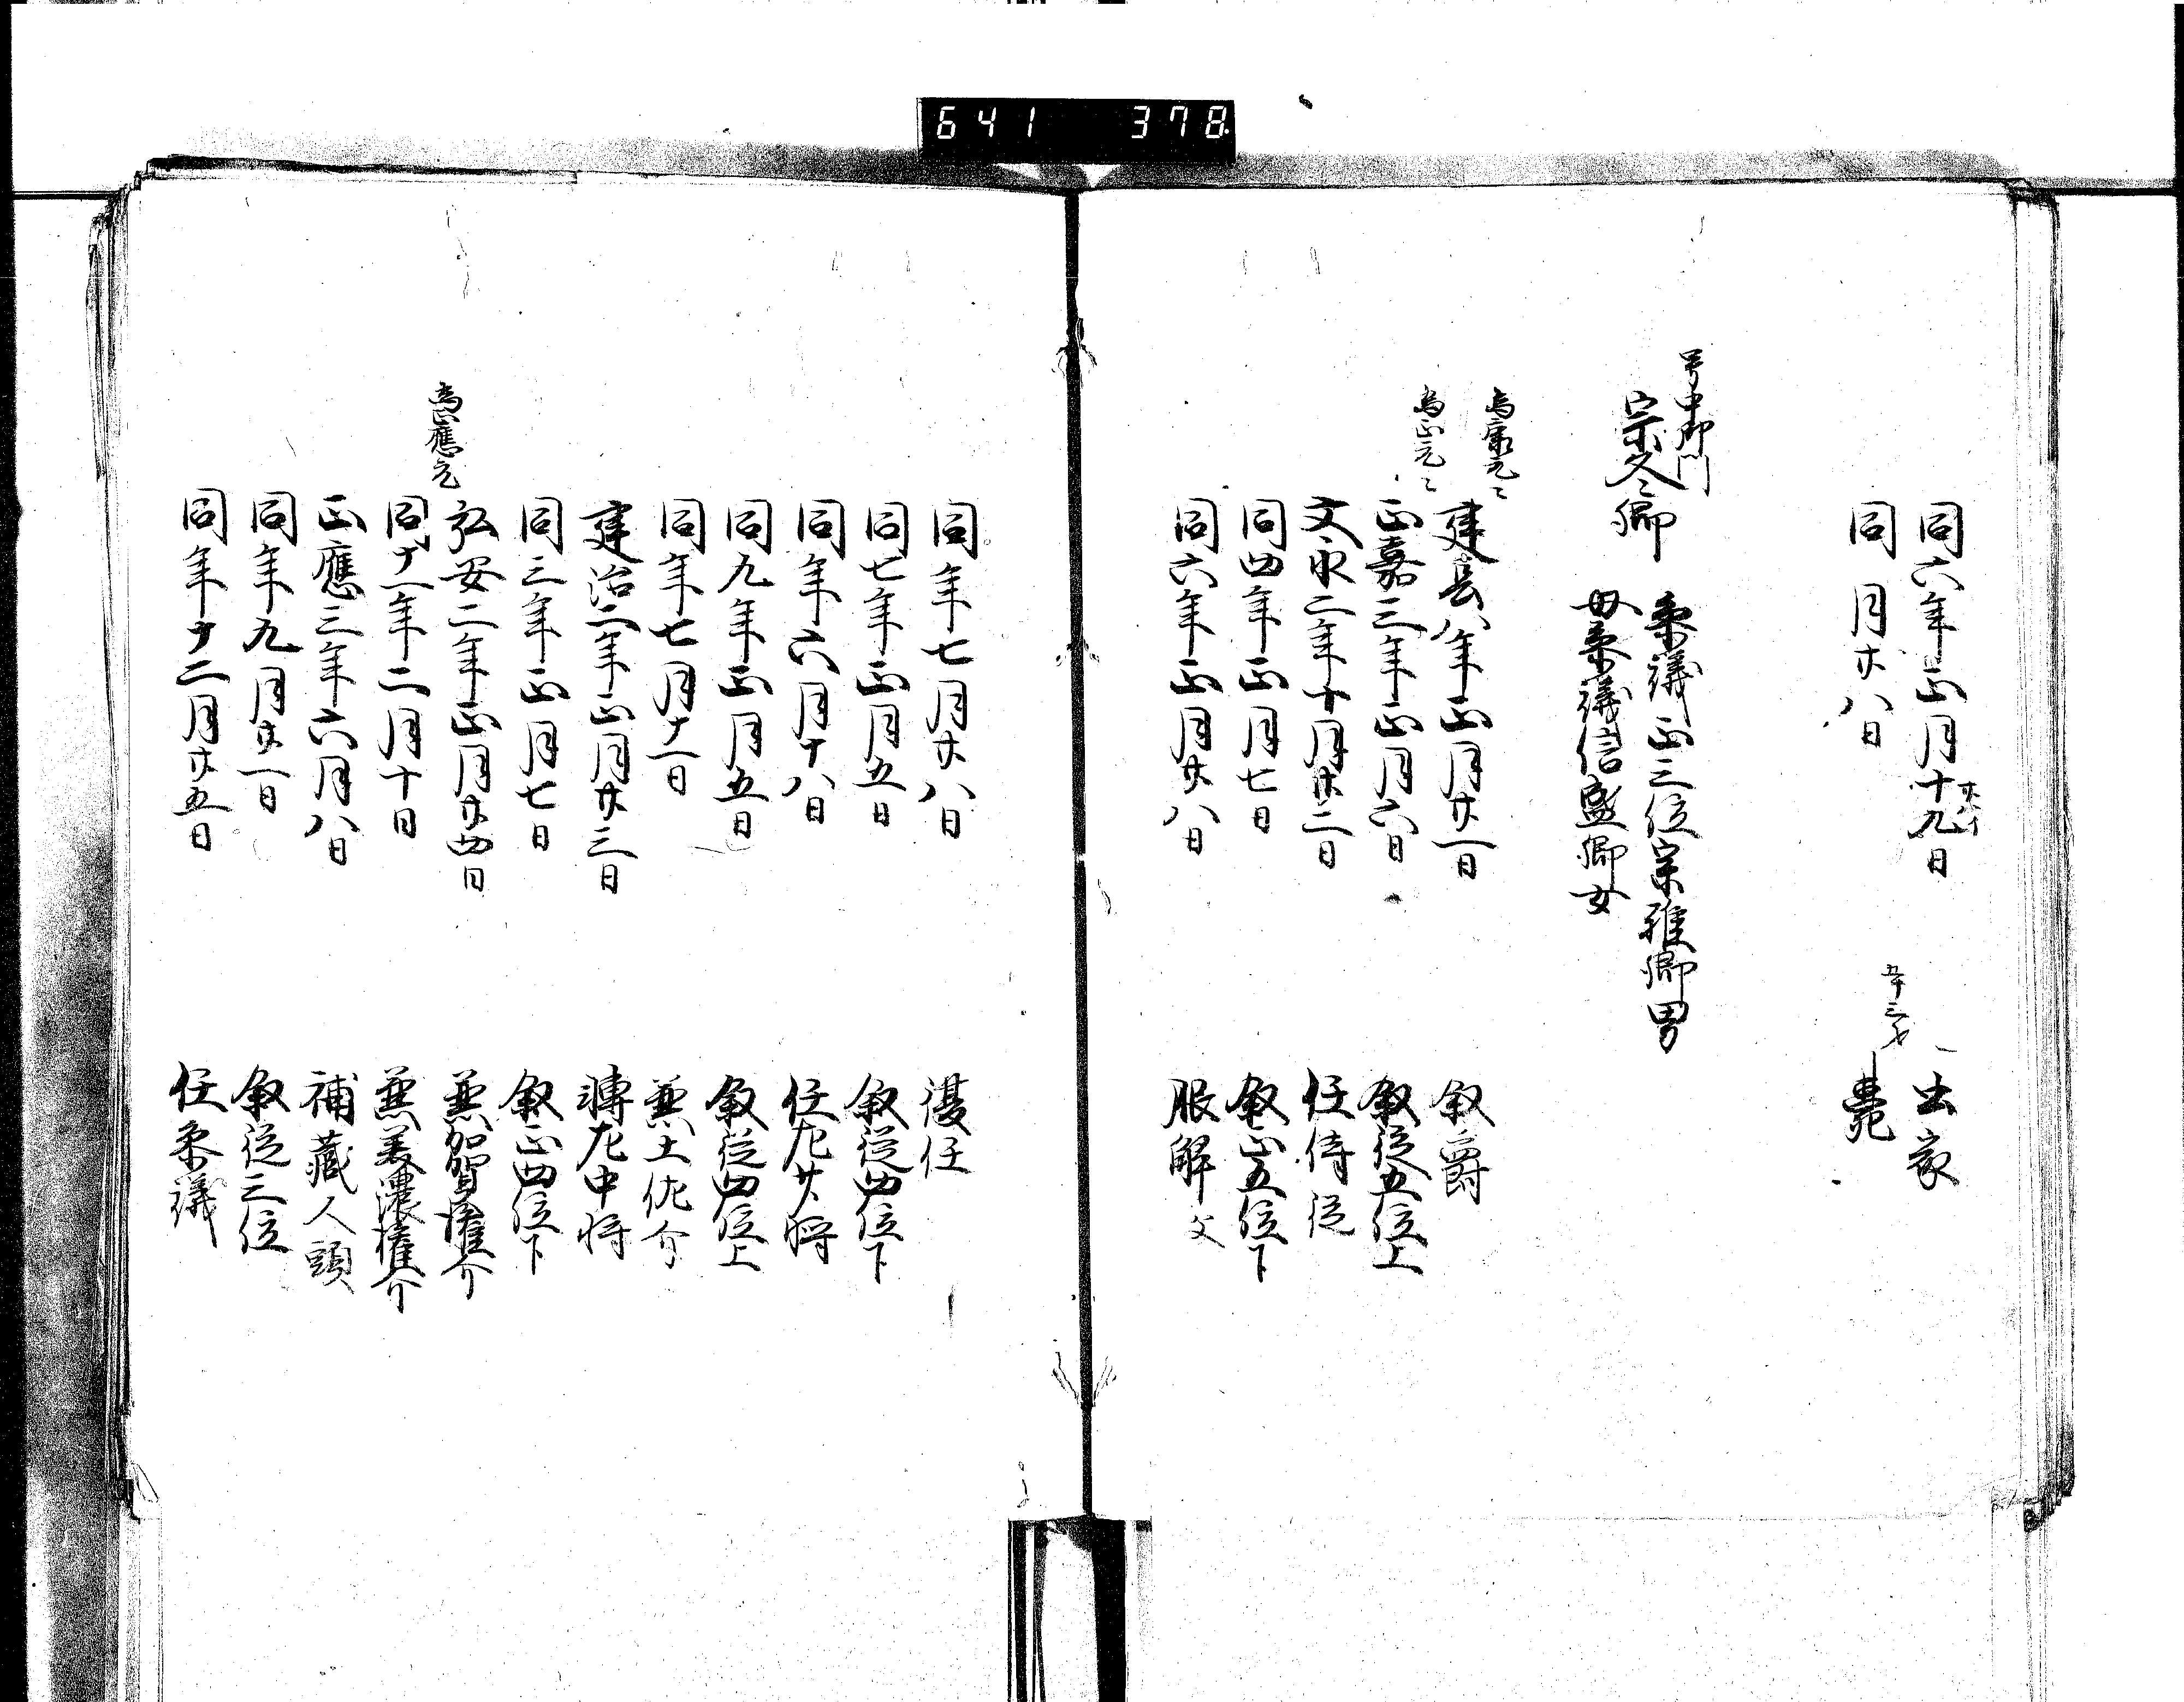 641 378
同六年正月十九日 出家
廿八イ
同月廿八日 薨
五十三才
号中御門
宗冬卿
参議正三位宗雅卿男
母参議信盛卿女
為康元々
建長八年正月廿一日 叙爵
為正元々
正嘉三年正月六日 叙従五位上
文永二年十月廿二日 任侍従
同四年正月七日 叙正五位下
同六年正月廿八日 服解父
同年七月廿八日 復任
同七年正月五日 叙従四位下
同年六月十八日 任左少将
同九年正月五日 叙従四位上
同年七月十一日 兼土佐介
建治二年正月廿三日 轉左中将
同三年正月七日 叙正四位下
弘安二年正月廿四日 兼加賀権介
為正應元
同十一年二月十日 兼美濃権介
正應三年六月八日 補蔵人頭
同年九月廿一日 叙従三位
同年十二月廿五日 任参議